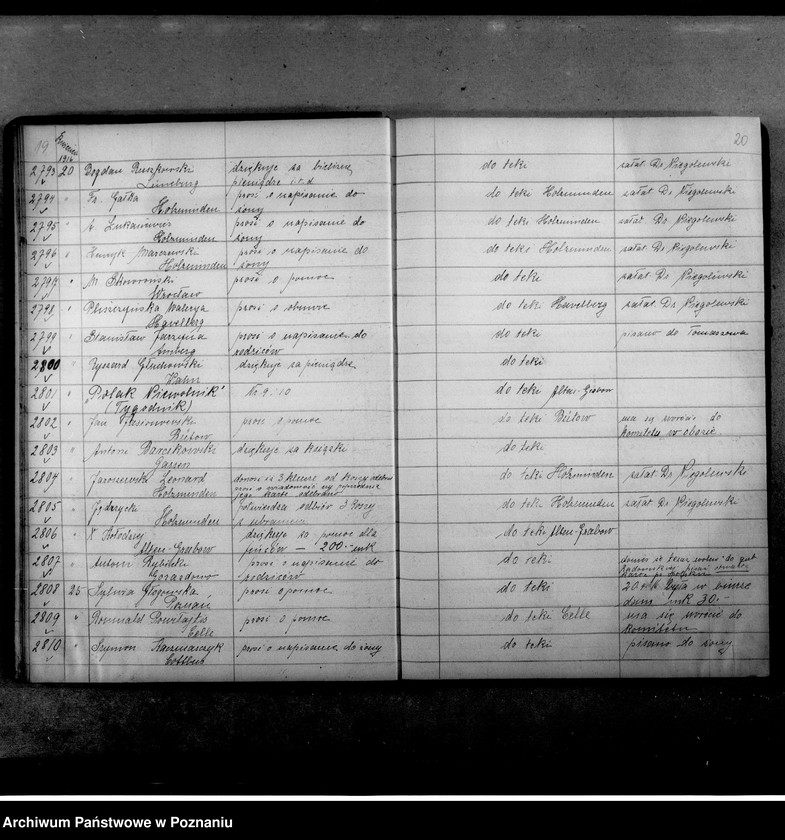 19 20
Kwiecień
1916
2793 20 Bogdan Ruszkowski dziękuje za bieliznę, do teki załat. Dr Niegolewski
Lüneburg pieniądze i.t.d
2794 " Fr. Gałka prosi o napisanie do do teki Holzminden załat Dr Niegolewski
Holzminden żony
2795 " A. Łukaniewicz prosi o napisanie do do teki Holzminden załat. Dr Niegolewski
Holzminden żony
2796 " Henryk prosi o napisanie do do teki Holzminden załat. Dr Niegolewski
Holzminden żony
2797 " M. Skoworoński prosi o pomoc do teki załat. Dr Niegolewski
Wrocław
2798 " Waleryja prosi o obuwie do teki Havelberg załat. Dr Niegolewski
Havelberg
2799 " Stanisław prosi o napisanie do do teki pisano do Tomaszowa
Amberg rodziców
2800 " Ryszard Głuchowski dziękuje za pieniądze do teki
Wahn
2801 " "Polak Niewolnik" Nr. 9 i 10 do teki Alten-Grabow
(Tygodnik)
2802 " Jan prosi o pomoc do teki Bütow ma się zwrócić do
Bütow Komitetu w obozie
2803 " Antoni dziękuje za książki do teki
Gassen
2804 " Jaroszewski Leonard donosi że 3 od do teki Holzminden załat. Dr Niegolewski
Holzminden jego kartę odebrano
2805 " Jędrzycki potwierdza odbiór 3 koszy do teki Holzminden załat Dr Niegolewski
Holzminden z ubraniem
2806 " X. Kołodziej dziękuje za pomoc dla do teki Alten-Grabow
Alten-Grabow jeńców – 200.- mk
2807 " Antoni Rybicki prosi o napisanie do do teki
Gozardowo rodziców
2808 25 Sylwia Głogowska prosi o pomoc do teki 20 w
Poznań mk 30.-
2809 " Romuald prosi o pomoc do teki Celle ma się zwrócić do
Celle Komitetu
2810 " Szymon Kaczmarczyk prosi o napisanie do żony do teki pisano do żony
Cottbus
Archiwum Państwowe w Poznaniu